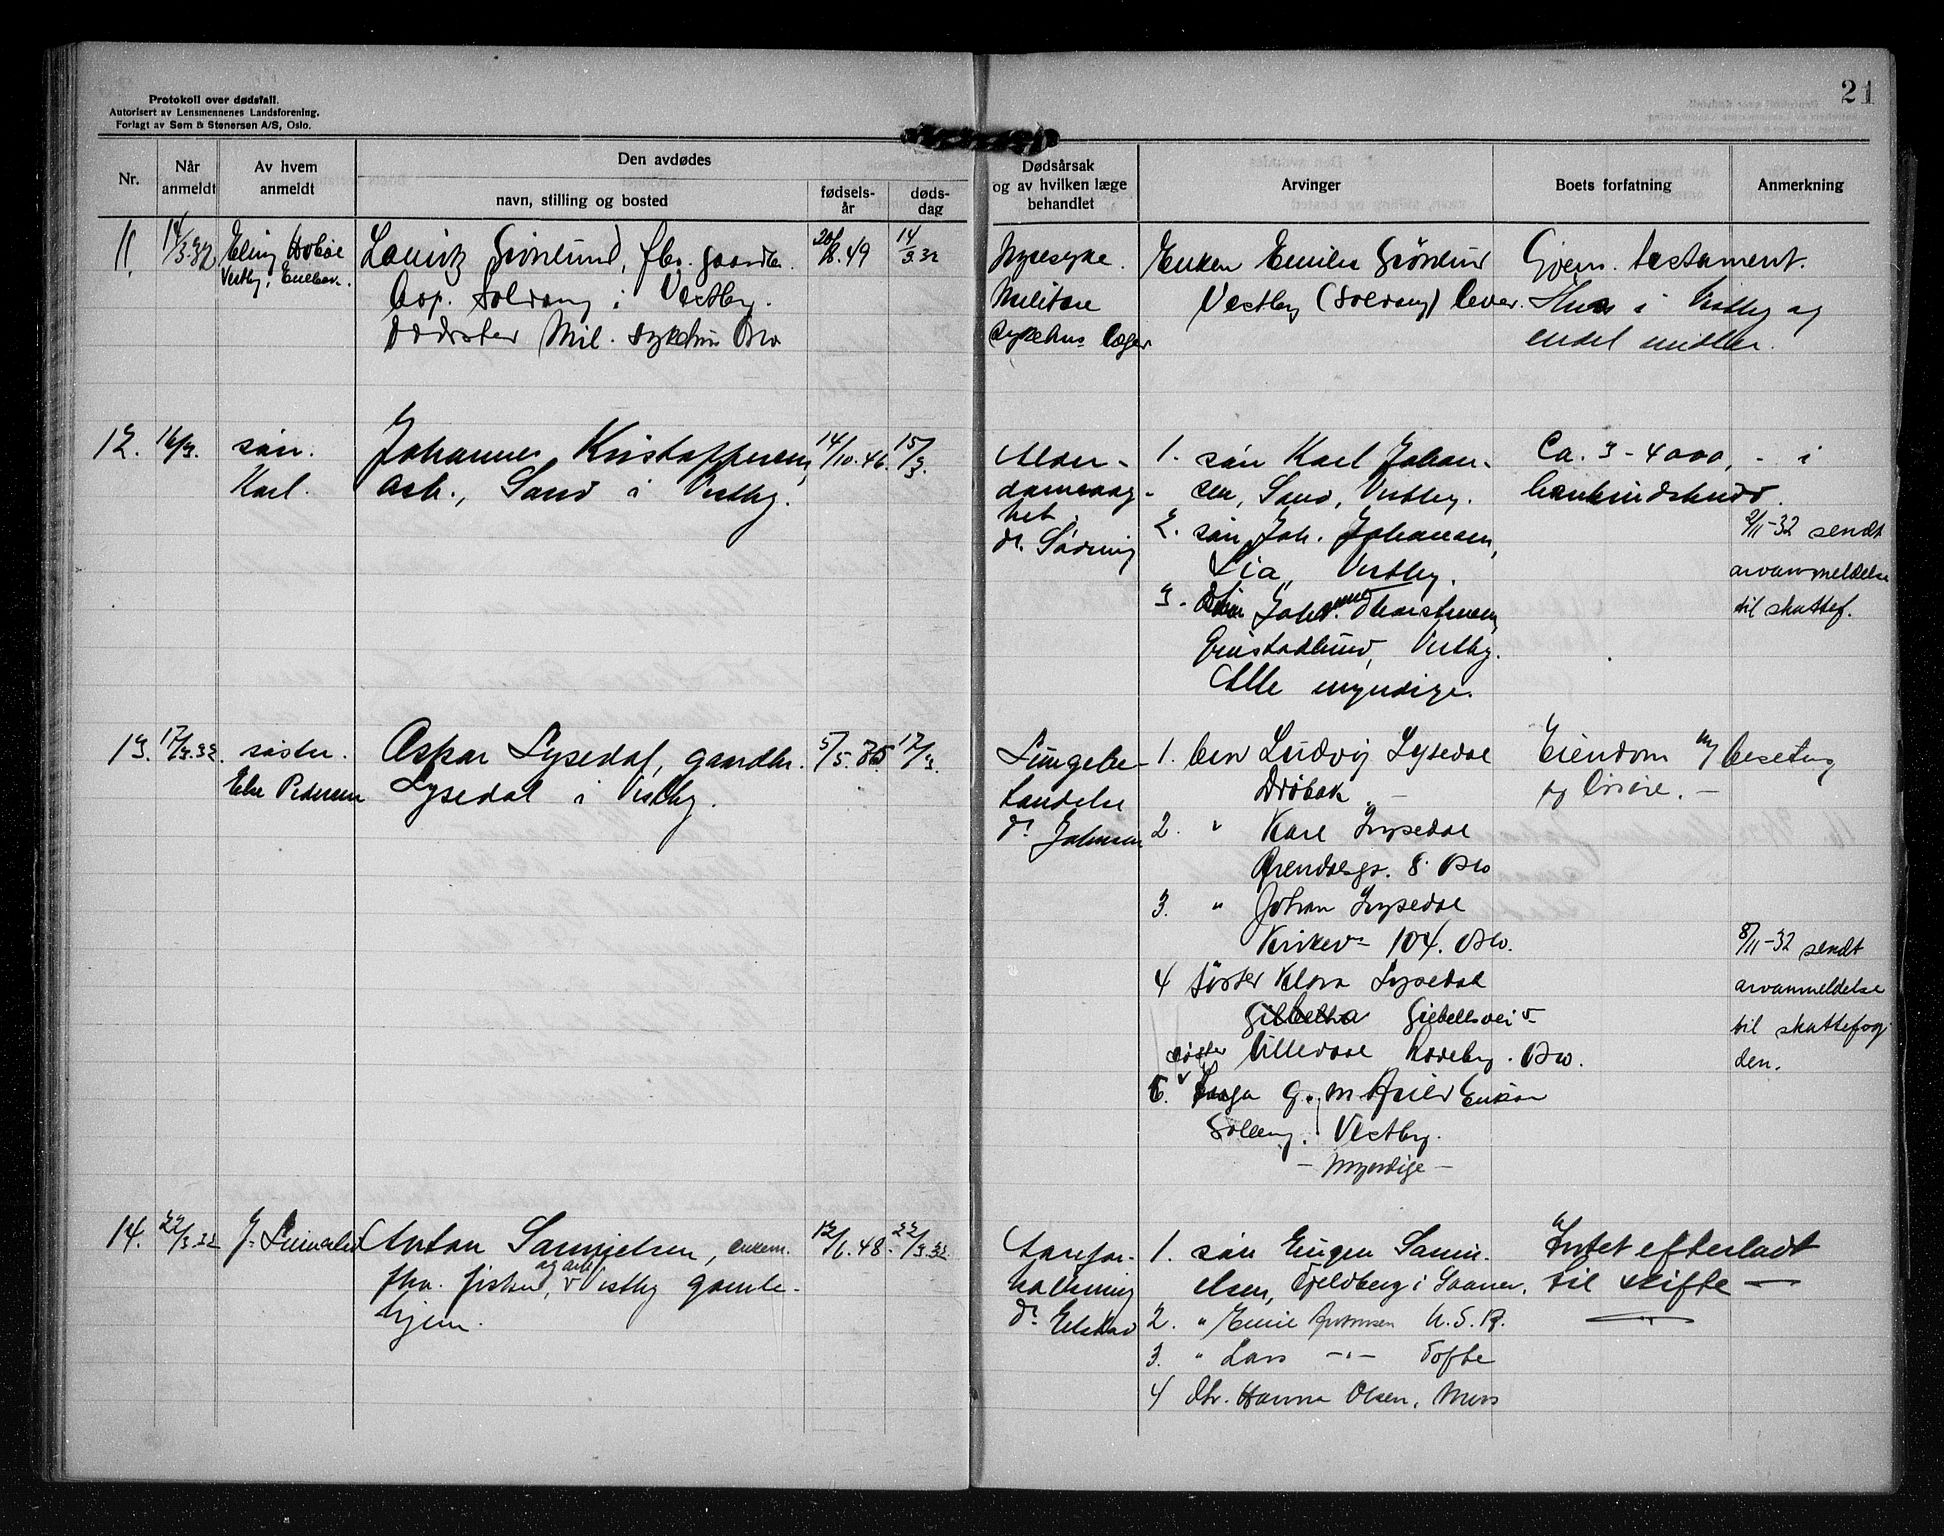 Protokoll over dødsfall.
Autorisert av Lensmennenes Landsforening.
Forlagt av Sem & Stenersen A/S, Oslo.
21
Nr.
Når anmeldt
Av hvem anmeldt
Den avdødes
navn, stilling og bosted
fødsels-år
døds-dag
Dødsårsak og av hvilken læge behandlet
Arvinger
Boets forfatning
Anmerkning
11.
14/3.32
Vestby
Lauritz Grönlund, fhv. gaardbr.
Solvang i Vestby.
Mil. sykehus Oslo
49
14/3.32
Nyresyke.
Militære
sykehus læger
Enken Emilie Grönlund
Vestby (Solvang) lever.
Gjens. testament.
Hus i Vestby og
endel midler.
12.
16/3.
sön.
Karl.
Johannes Kristoffersen,
arb., Sand i Vestby.
14/10.46.
15/3.
Alder-
domssvag-
het
dr. Södring
1. sön Karl Johan-
sen, Sand, Vestby.
2. sön Joh. Johansen,
Lia, Vestby.
3. Thorstensen,
Vestby.
Alle myndige.
Ca. 3-4000,- i
bankindskudd.
2/11-32 sendt
arvanmeldelse
til skattef.
13.
17/3.32
söster.
Else Pedersen
Oskar Lysedal, gaardbr.
Lysedal i Vestby.
17/3.
Lungebe-
tændelse
dr. Johnsen
1. bror Ludvig Lysedal
Dröbak
2. " Karl Lysedal
Arendalsgt. 8 Oslo
3. " Johan Lysedal
Kirkevn 104. Oslo.
4 söster Klara Lysedal
Lilledal Oslo.
söster
5. g. m.
Vestby.
- myndige -
Eiendom m/ besetng
og lösöre. -
8/11-32 sendt
arvanmeldelse
til skattefog
den.
14.
22/3.32
Anton Samuelsen, enkem.
fhv. fisker, og arb. Vestby gamle-
hjem.
48.
22/3.32
Aarefor-
kalkning
dr.
1. sön Eugen Samu-
elsen, Fjeldberg i Saaner.
2. " Emil Antonsen U.S.A.
3. " Lars -"- Tofte
4 dtr. Hanna Olsen, Moss
Intet efterladt
til skifte —